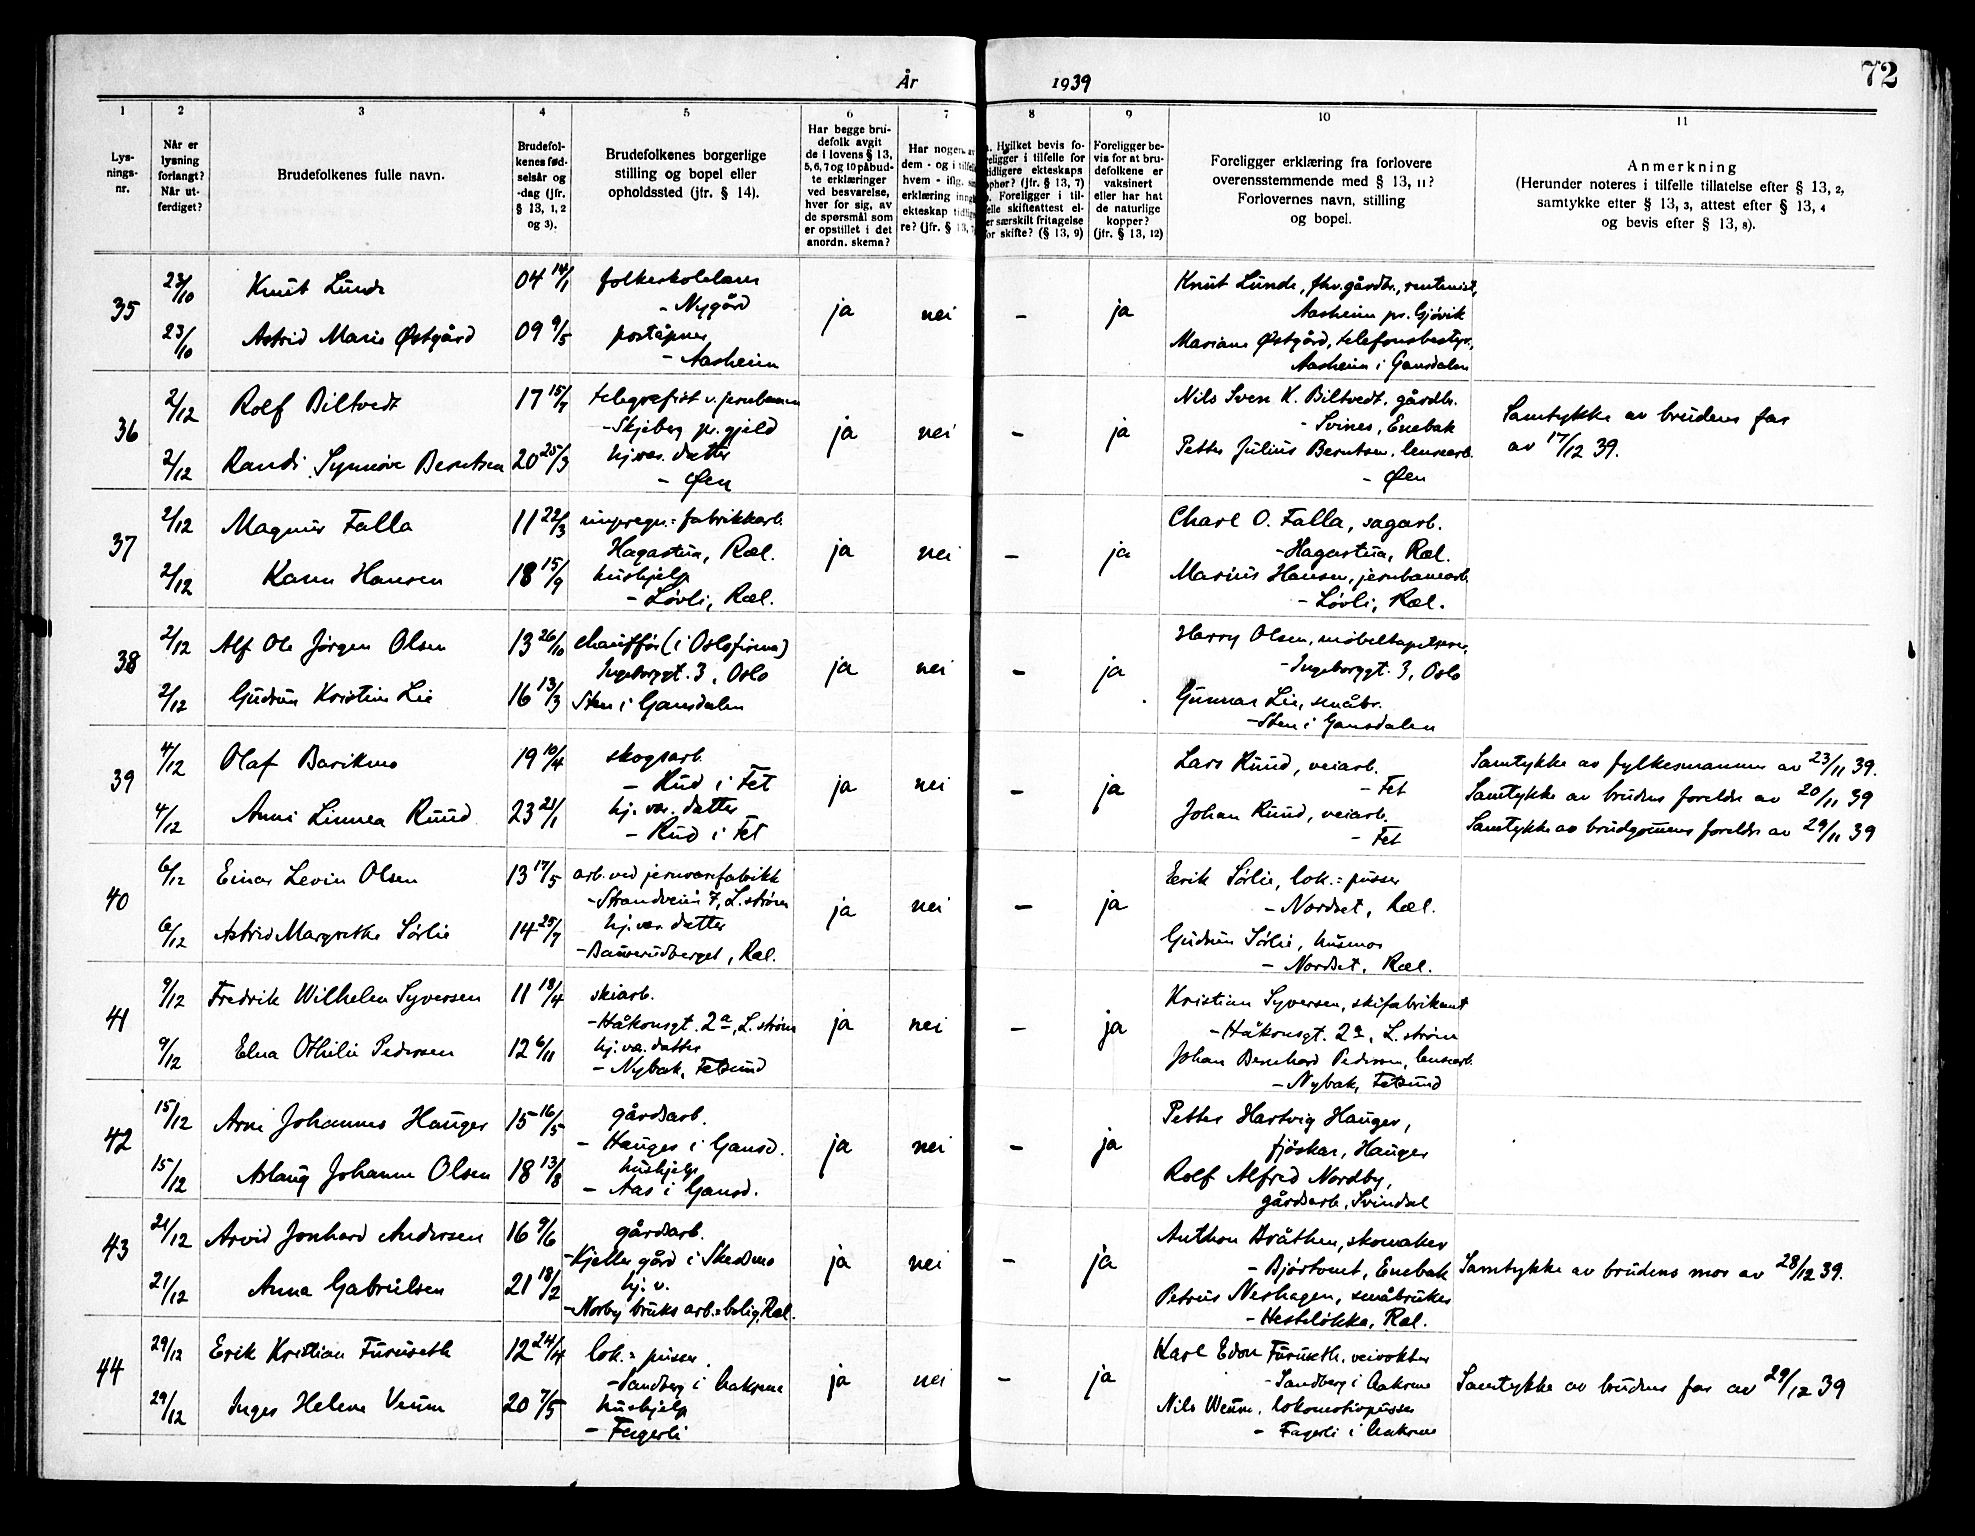 År 1939
72
1 2 3 4 5 6 7 8 9 10 11
Lys-
nings-
nr.
Når er
lysning
forlangt?
Når ut-
ferdiget?
Brudefolkenes fulle navn.
Brudefol-
kenes fød-
selsår og
-dag (jfr.
§ 13, 1, 2
og 3).
Brudefolkenes borgerlige
stilling og bopel eller
opholdssted (jfr. § 14).
Har begge bru-
defolk avgit
de i lovens § 13,
5, 6, 7 og 10 påbud-
te erklæringer
ved besvarelse,
hver for sig, av
de spørsmål som
er opstillet i det
anordn. skema?
Har nogen av
dem - og i tilfelle
hvem - iflg.
erklæring inngå
ekteskap tidlige-
re? (jfr. § 13,
Hvilket bevis fo-
religger i tilfelle for
tidligere ekteskaps
ophør? (jfr. § 13, 7)
Foreligger i til-
felle skifteattest el-
er særskilt fritagelse
for skifte? (§ 13, 9)
Foreligger be-
vis for at bru-
defolkene er
vaksinert
eller har hat
de naturlige
kopper?
(jfr. § 13, 12)
Foreligger erklæring fra forlovere
overensstemmende med § 13, 11?
Forlovernes navn, stilling
og bopel.
Anmerkning
(Herunder noteres i tilfelle tillatelse efter § 13, 2,
samtykke efter § 13, 3, attest efter § 13, 4
og bevis efter § 13, 8).
35
23/10 Knut Lunde 04 14/1 folkeskolelærer
- Nygård
23/10 Astrid Marie Østgård 09 9/5 poståpner
- Aasheim
ja nei - ja
Knut Lunde, fhv. gårdbr., rentenist,
Aasheim pr. Gjövik
Mariane Østgård, telefonbestyr.,
Aasheim i Gansdalen
36
2/12 Rolf Biltvedt 17 15/7 telegrafist v. jernbanen
- Skjeberg pr. gjeld
2/12 Randi Synnöve Berntsen 20 25/3 hj.vær. datter
- Øen
ja nei - ja
Nils Sven K. Biltvedt, gårdbr.
- Svines, Enebak
Petter Julius Berntsen, lensearb.
- Øen
Samtykke av brudens far
av 17/12 39.
37
2/12 Magnus Falla 11 22/3 impregn.= fabrikkarb.
Hagastua, Ræl.
2/12 Karin Hansen 18 15/9 hushjelp
- Løvli, Ræl.
ja nei - ja
Charl O. Falla, sagarb.
- Hagastua, Ræl.
Marius Hansen, jernbanearb.
- Løvli, Ræl.
38
2/12 Alf Ole Jörgen Olsen 13 26/10 chauffør (i Oslofirma)
Ingeborggt. 3, Oslo
2/12 Gudrun Kristine Lie 16 13/3 Sten i Gansdalen
ja nei - ja
Harry Olsen, möbeltapetserer,
- Ingeborggt. 3, Oslo
Gunnar Lie, småbr.
- Sten i Gansdalen
39
4/12 Olaf Barikmo 19 10/4 skogsarb.
- Rud i Fet
4/12 Anni Linnea Ruud 23 21/1 hj. vær. datter
- Rud i Fet
ja nei - ja
Lars Ruud, veiarb.
- Fet
Johan Ruud, veiarb.
- Fet
Samtykke av fylkesmannen av 23/11 39.
Samtykke av brudens foreldre av 20/11 39
Samtykke av brudgommens foreldre av 29/11 39
40
6/12 Einar Levin Olsen 13 17/5 arb. ved jernvarefabrikk
- Strandveien 7, L.ström
6/12 Astrid Margrethe Sörlie 14 25/7 hj.vær. datter
- Bauerudberget, Ræl.
ja nei - ja
Eerik Sörlie, lok.= pusser
- Nordset, Ræl.
Gudrun Sörlie, husmor
- Nordset, Ræl.
41
9/12 Fredrik Wilhelm Syversen 11 18/4 skiarb.
- Håkonsgt. 2a, L.ström
9/12 Elna Othilie Pedersen 12 6/11 hj. vær. datter
- Nybak, Fetsund
ja nei - ja
Kristian Syversen, skifabrikant
- Håkonsgt. 2a, L.ström
Johan Bernhard Pedersen, lensearb.
- Nybak, Fetsund
42
15/12 Arne Johannes Hauger 15 16/5 gårdsarb.
- Hauger i Gansd.
15/12 Aslaug Johanne Olsen 18 13/8 hushjelp
- Aas i Gansd.
ja nei - ja
Petter Hartvig Hauger,
fjöskar, Hauger
Rolf Alfred Nordby,
gårdsarb., Svindal
43
21/12 Arvid Jonhard Andersen 16 9/6 gårdsarb.
- Kjeller gård i Skedsmo
21/12 Anna Gabrielsen 21 18/2 hj. v.
- Norby bruks arb.=bolig, Ræl.
ja nei - ja
Anthon Bråthen, skomaker
- Bjørtomt, Enebak
Petrus Neshagen, småbruker
- Hesteløkka, Ræl.
Samtykke av brudens mor av 28/12 39.
44
29/12 Erik Kristian Furuseth 12 24/4 lok.= pusser
- Sandberg i Aakrene
29/12 Inger Helene Veum 20 7/5 hushjelp
- Fagerli
ja nei - ja
Karl Edon Furuseth, veivokter
- Sandberg i Aakrene
Nils Weum, lokomotivpusser
- Fagerli i Aakrene
Samtykke av brudens far av 29/12 39